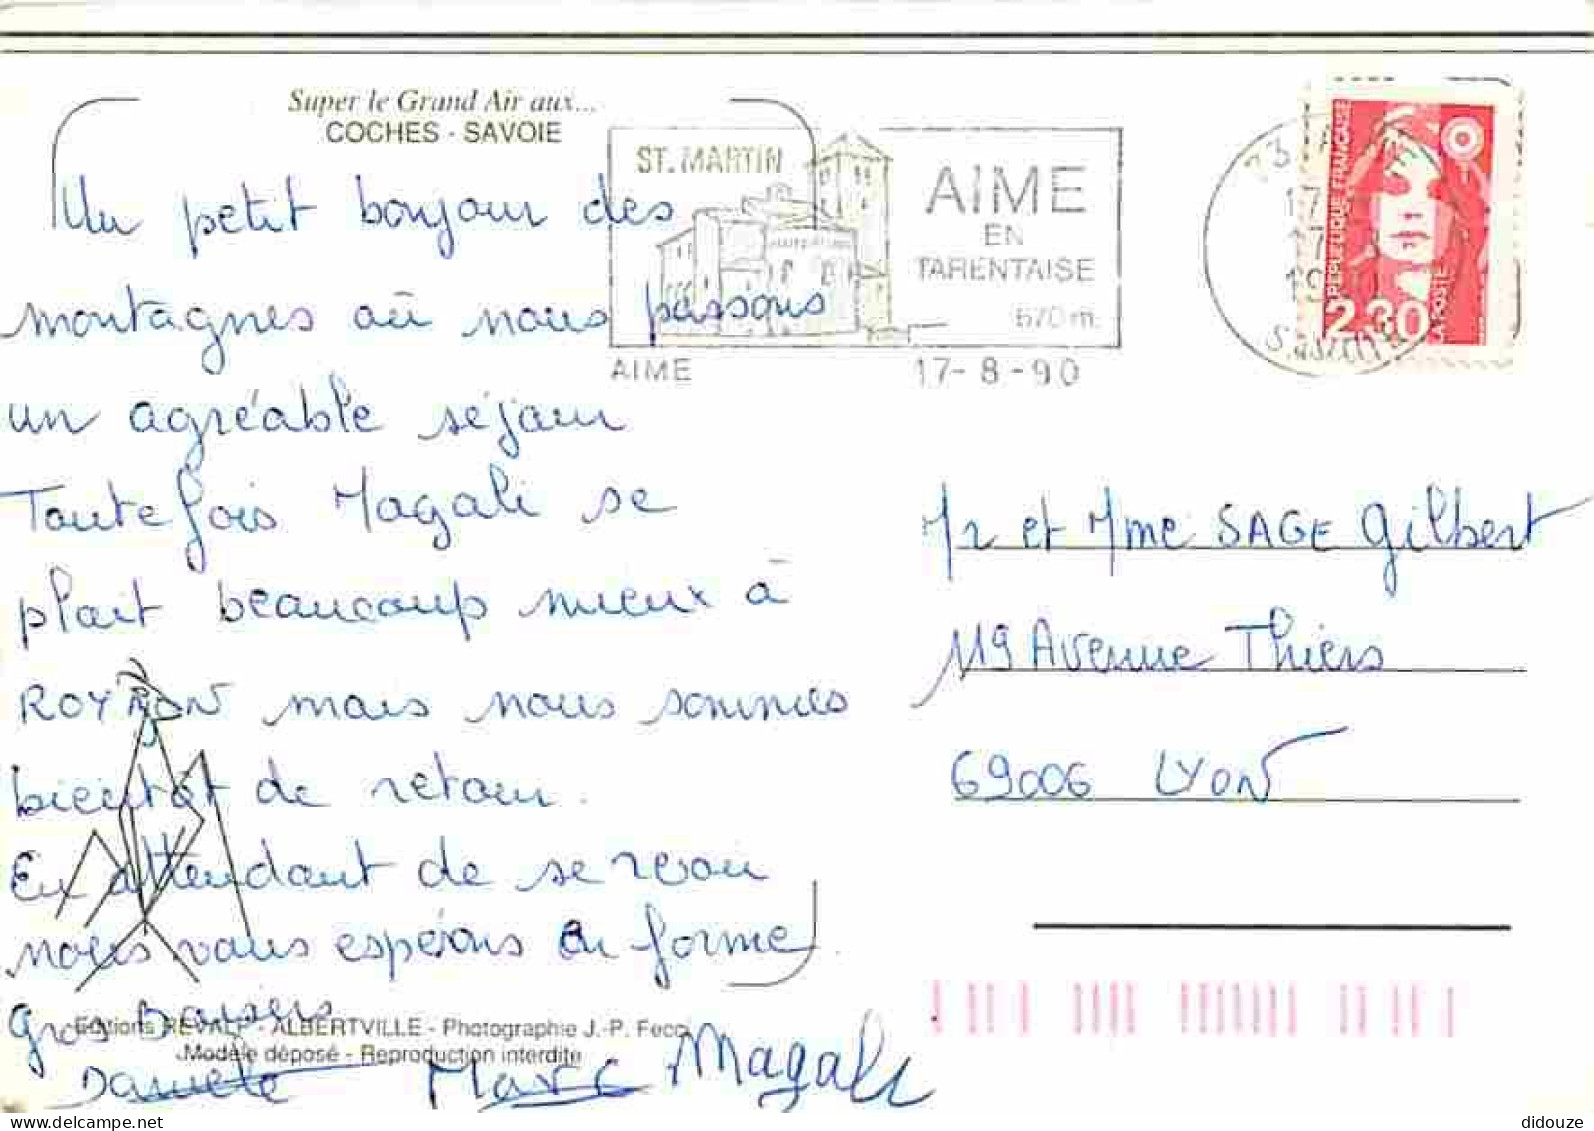 Super le Grand Air aux...
COCHES - SAVOIE
Un petit bonjour des
montagnes où nous passons
un agréable séjour
Toutefois Magali se
plait beaucoup mieux à
ROYBON mais nous sommes
bientôt de retour.
En attendant de se revoir
nous vous espérons en forme.
Gros Baisers
Danièle Marc Magali
Editions REVALP - ALBERTVILLE - Photographie J.-P. Fecci
Modèle déposé - Reproduction interdite
ST. MARTIN
AIME
EN
TARENTAISE
670 m.
AIME
17-8-90
73
17
19
SAVOIE
REPUBLIQUE FRANÇAISE
2,30
LA POSTE
Mr et Mme SAGE Gilbert
119 Avenue Thiers
69006 LYON
didouze